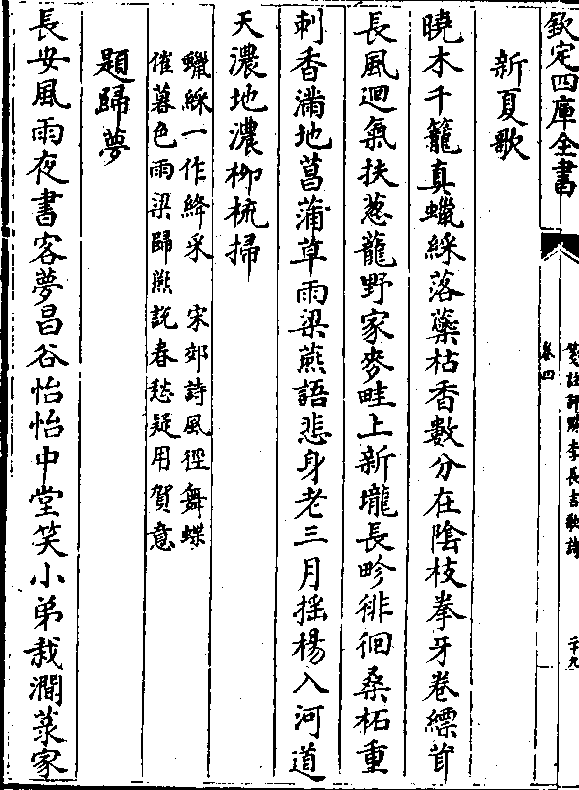 欽定四庫全書
箋註評點李長吉歌詩
卷四
二十九
新夏歌
曉木千籠真蠟綵落蘂枯香數分在陰枝拳牙卷縹茸
長風迴氣扶葱蘢野家麥畦上新壠長畛徘徊桑柘重
刺香滿地菖蒲草雨梁燕語悲身老三月揺楊入河道
天濃地濃柳梳掃
蠟綵一作絳采　宋郊詩風徑舞蝶
催暮色雨梁歸燕託春愁疑用賀意
題歸夢
長安風雨夜書客夢昌谷怡怡中堂笑小弟栽澗菉家